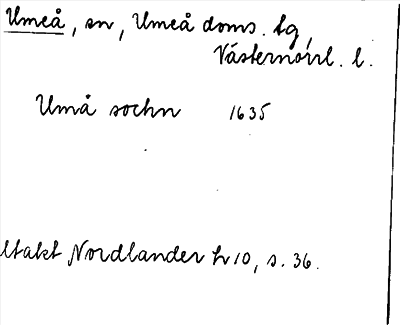 Umeå, sn, Umeå doms. tg,
Västernorrl. l.
Umå sochn 1635
Utakt Nordlander h 10, s. 36.